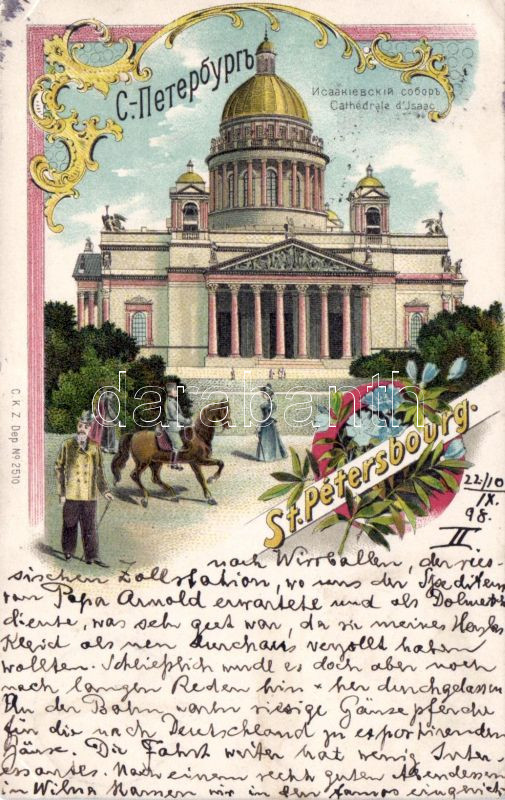 С.-Петербургъ
Исаакіевскій соборъ
Cathédrale d'Isaac
C. K. Z. Dep. No 2510
darabanth
St. Pétersbourg.
22/10
IX.
98.
II
nach Wirballen, der
sischen Zollstation, wo uns der Spediteur
von Papa Arnold erwartete und als Dolmetsch
diente, was sehr gut war, da sie meines
Kleid als neu durchaus verzollt haben
wollten. Schließlich wurde es doch aber noch
nach langen Reden hin + her durchgelassen
An der Bahn waren riesige Gänsepferche
für die nach Deutschland zu exportierenden
Gänse. Die Fahrt weiter hat wenig Inter-
essantes. Nach einem recht guten Abendessen
in Wilna kamen wir in den famos eingerich